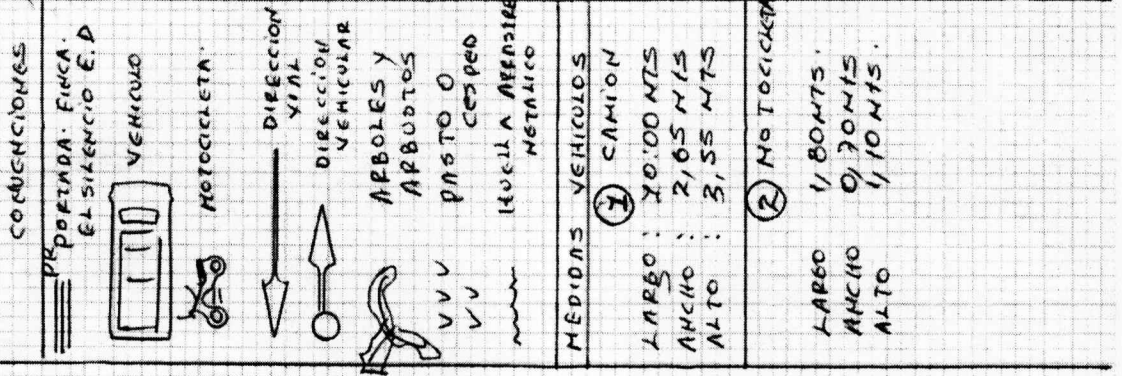 CONVENCIONES
PR PORTADA. FINCA.
EL SILENCIO E.D
VEHICULO
MOTOCICLETA.
DIRECCION
VIAL
DIRECCION
VEHICULAR
ARBOLES Y
ARBUOTOS
PASTO O
CESPED
HUELLA ARRASTRE
METALICO
MEDIDAS VEHICULOS
1 CAMION
LARGO : 10.00 MTS
ANCHO : 2,65 MTS
ALTO : 3,55 MTS
2 MOTOCICLETA
LARGO 1,80 MTS.
ANCHO 0,70 MTS
ALTO 1,10 MTS.